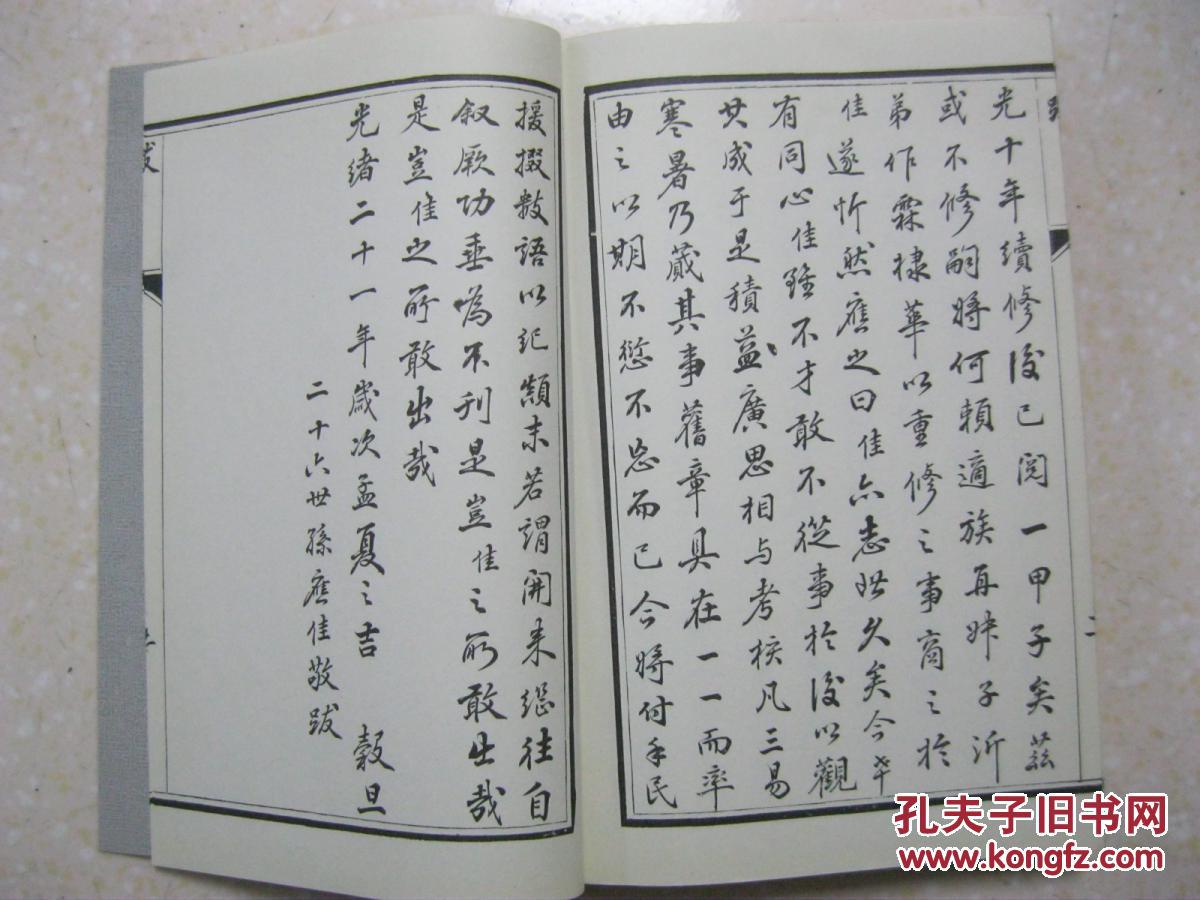 光十年續修後已閱一甲子矣茲
或不修嗣將何賴適族再姊子沂
弟作霖棣華以重修之事商之於
佳遂忻然應之曰佳亦志此久矣今幸
有同心佳雖不才敢不從事於後以觀
其成于是積益廣思相与考核凡三易
寒暑乃蕆其事舊章具在一一而率
由之以期不愆不忘而已今將付手民
援掇數語以記顛末若謂開来繼往自
叙厥功垂為不刊是豈佳之所敢出哉
是豈佳之所敢出哉
光緒二十一年歲次孟夏之吉 穀旦
二十六世孫應佳敬跋
跋
二
孔夫子旧书网
www.kongfz.com